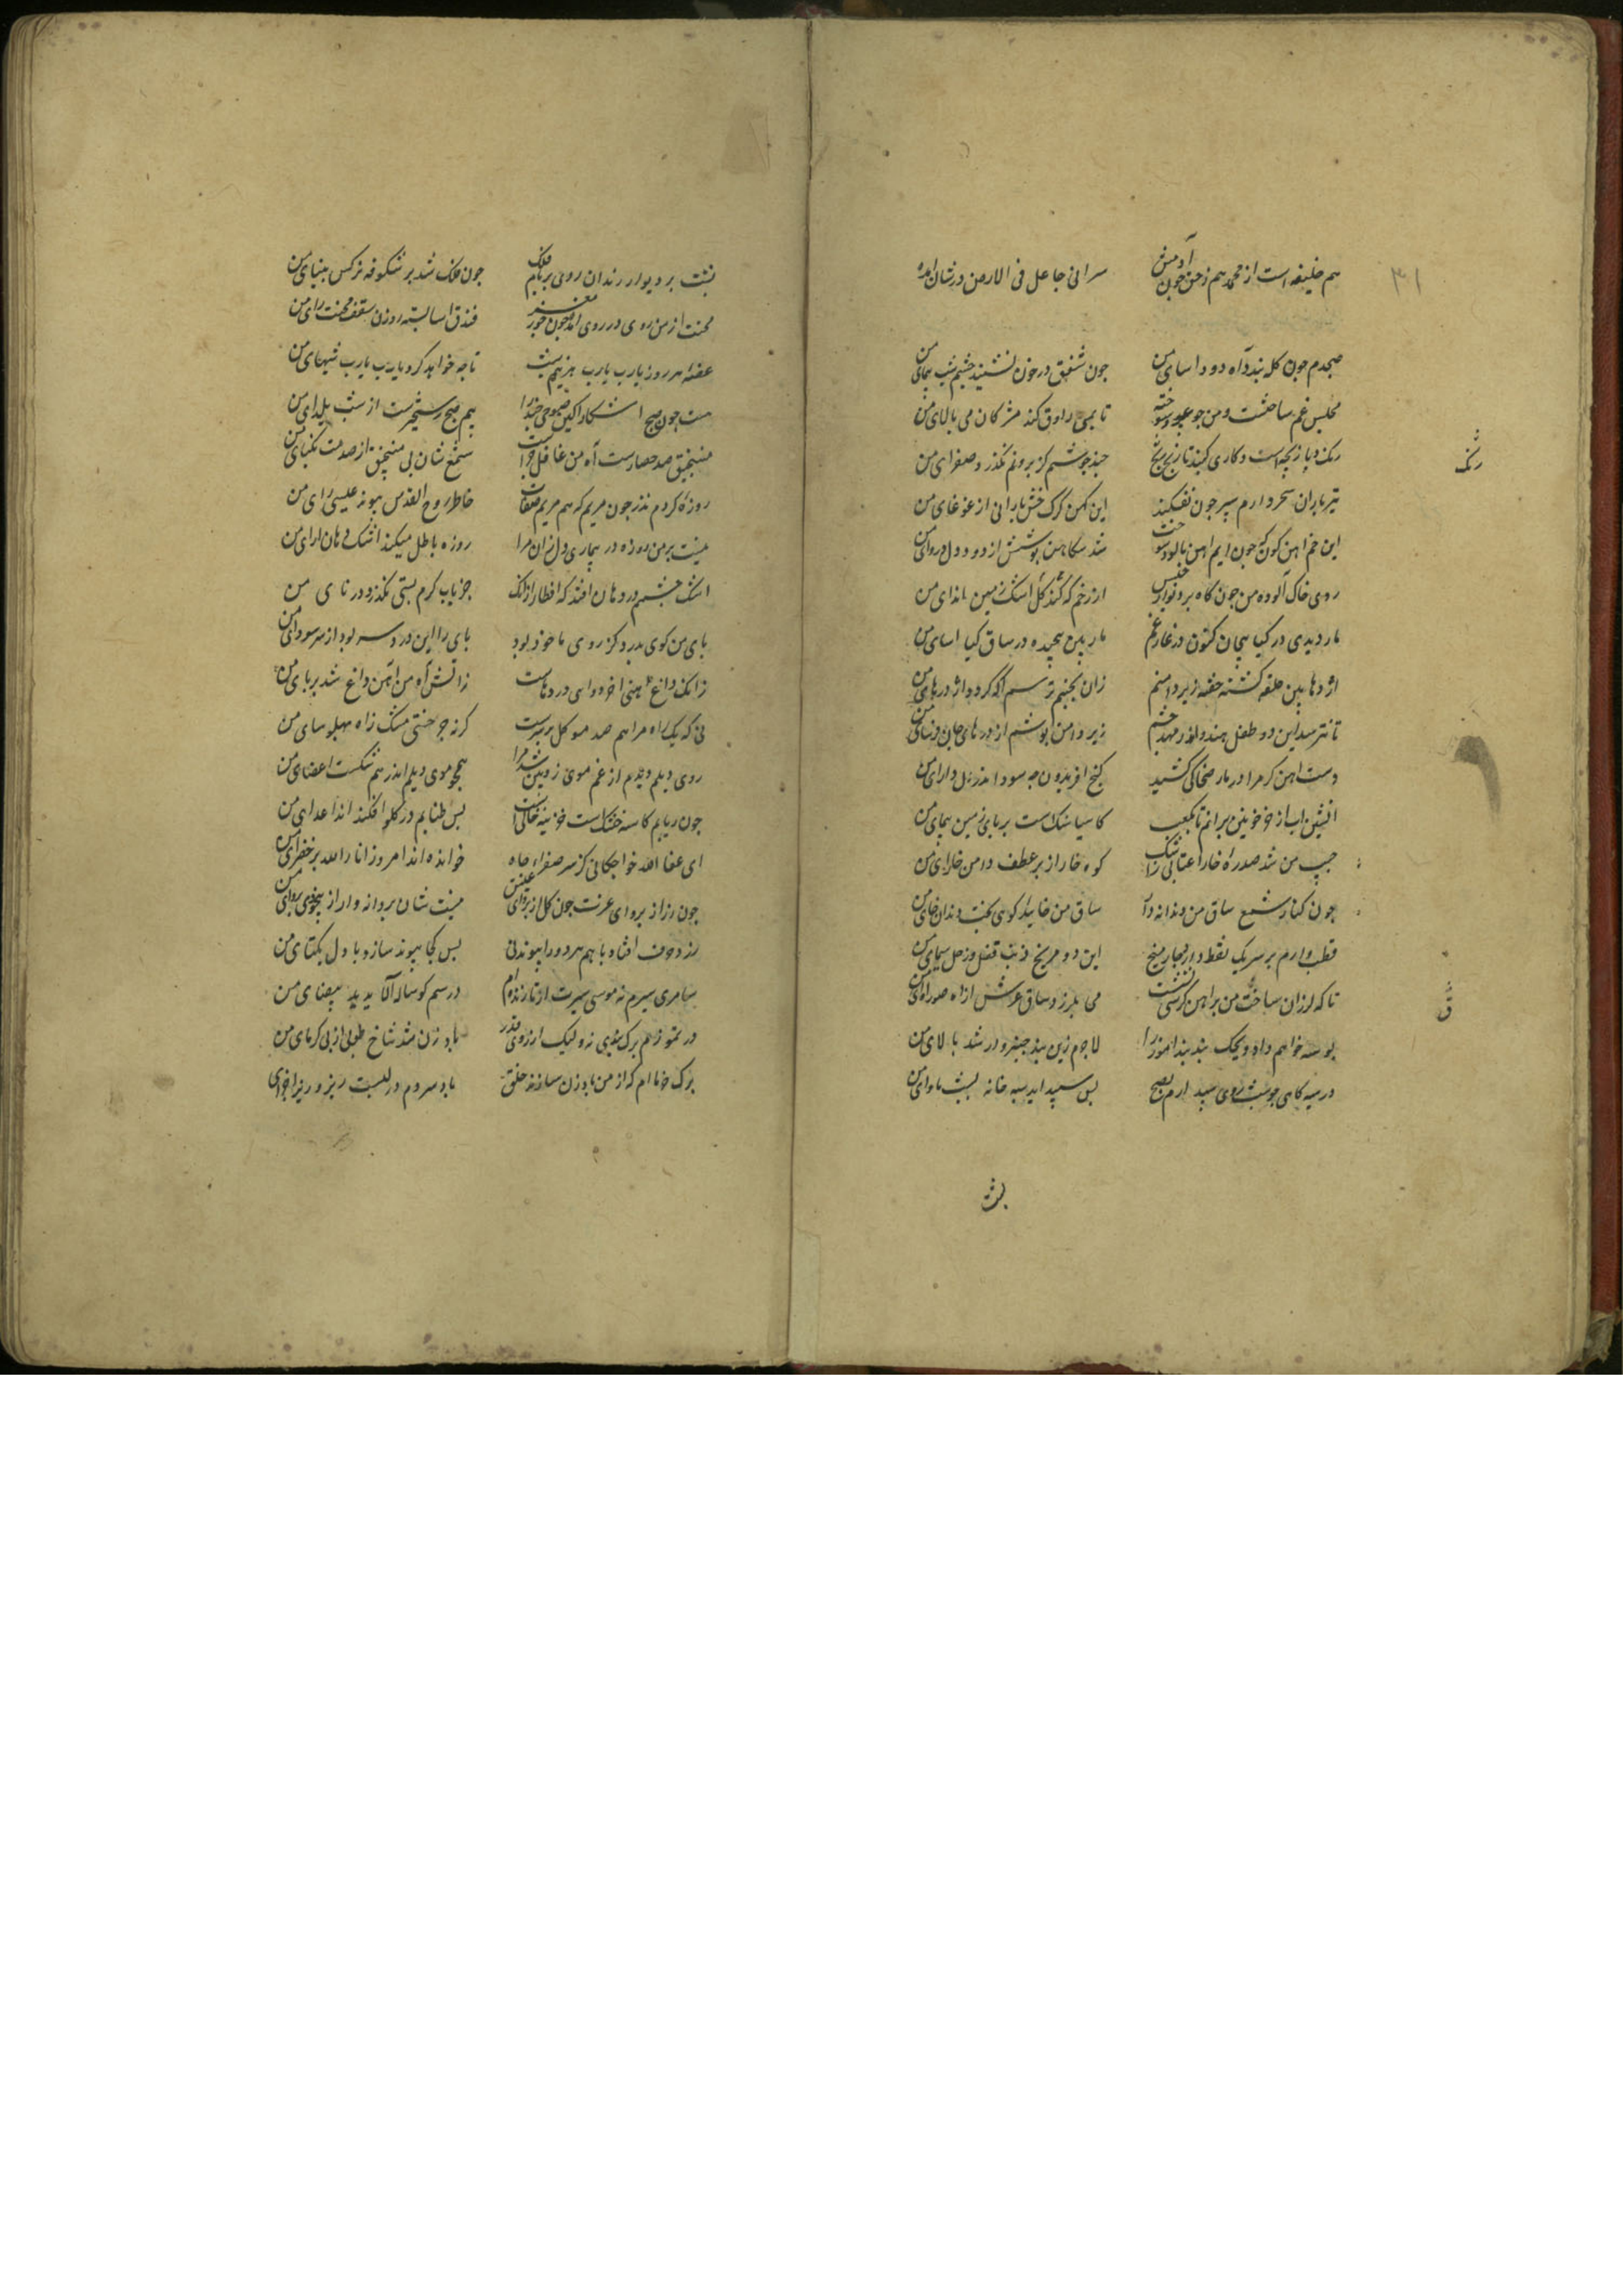 ۳۱
هم خلیفه است از محمد هم ز حق چون آدمش سر انی جاعل فی الارض در شان آمده
صبحدم چون کله بندد آه دود آسای من چون شفق در خون نشیند چشم شب پیمای من
مجلس غم ساختست و من چو عود سوخته تا بمی راوق کند مژکان می پالای من
رنک
تیر باران سحر دارم سپر چون نفکند این کهن کرک خشن بارانی از غوغای من
این خم آهن کون که چون ریم آهنم پالود و سوخت شد سکاهن پوشش از دود دل دروای من
روی خاک آلوده من چون کاه بر دیوار حبس از رخم که کل کند اشک زمین اندای من
مار دیدی در کیا پیچان کنون در غار غم مار بین پیچیده در ساق کیا آسای من
اژدها بین حلقه کشته خفته زیر دامنم زان نجنبم ترسم آکه کردد اژدرهای من
تا نترسد این دو طفل هندو اندر مهد چشم زیر دامن پوشم اژدرهای جان فرسای من
دست آهنکر مرا در مار ضحاکی کشید کنج افریدون چه سود اندر دل دارای من
آتشین آب از خوی خونین برانم تا بکعب کاسیا سنکست بر پای زمین پیمای من
جیب من شد صدره خارا عتابی ز اشک کوه خارا زیر عطف دامن خارای من
چون کنار شمع ساق من دندانه دار ساق من خایید کوی بخت دندان خای من
قطب وارم بر سر یک نقطه دارد چار میخ این دو مریخ ذنب فعل زحل سیمای من
ق
تا که لرزان ساق من بر آهنین کرسی نشست می بلرزد ساق عرش از آه صور آوای من
بوسه خواهم داد ویحک بند پند آموز را لاجرم زین بند چنبروار شد بالای من
در سیه کاری چو شب روی سپید آرم چو صبح پس سپید آید سیه خانه بشب ماوای من
پشت
پشت بر دیوار زندان روی بر بام فلک چون فلک شد پر شکوفه نرکس بینای من
محنت من روی در روی آمد چون جوز مغز فندق آسا بسته روزن سقف محنت زای من
غصه هر روز و یارب یارب هر نیم شب تا چه خواهد کرد یارب یارب شبهای من
هست چون صبح آشکارا کین صبوحی چند را بیم صبح رستخیزست از شب یلدای من
روزه کردم نذر چون مریم که هم مریم صفاست خاطر روح القدس پیوند عیسی زای من
نیست بر من روزه در بیماری دل زان مرا روزه باطل میکند اشک دهان آرای من
اشک چشمم در دهان افتد که افطار از آنک جز بآب کرم چیزی نکذرد در نای من
پای من کویی بدرد کژ روی ماخوذ بود پای را این درد سر بود از سر سودای من
زانکه داغ آهنین آخر دوای دردهاست ز آتش آه من آهن داغ شد بر پای من
نی که یک آه مرا هم صد موکل بر سرست
روی دیلم دیدم از غم موی زوبین شد مرا همچو موی دیلم اندر هم شکست اعضای من
چون ربابم کاسه خشک است و خزینه خالی است پس طنابم در کلو افکنده اند اعدای من
ای عفا الله خواجکانی کز سر صفرای جاه خوانده اند امروز انا الله بر خضرای من
چون رزاز پروای عزت
سامری سیرم نه موسی سیرت ار تا زنده ام در سم کوساله آلاید ید بیضای من
در تموزم برک بیدی نه ولیک از روی قدر باد زن شد شاخ طوبی از پی کرمای من
برک خرماام که از من باد زن سازند خلق باد سردم در لبست و ریز ریز اجزای من